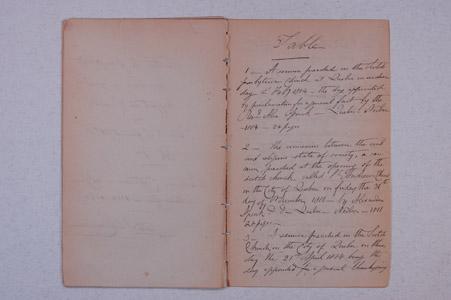 Table
1 — A sermon preached in the Scotch
Presbyterian Church at Quebec on wednes
day 1st Feby 1804 — the day appointed
by proclamation for a general fast — by the
Revd Alex. Spark — Quebec: Neilson
1804 — 24 pages
2 — The connexion between the civil
and religious state of society, a ser
mon, preached at the opening of the
scotch church, called St Andrew's Church
in the City of Quebec on friday the 30th
day of November 1810 — by Alexander
Spark D D — Quebec — Neilson — 1811
24 pages —
3 — A sermon preached in the Scotch
Church in the City of Quebec on thurs
day the 21st April 1814 being the
day appointed for a general thanksgiving